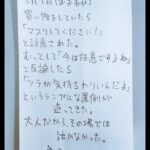 5月1日(はまねが)
買い物をしていたら
「マスクしてください！」
と注意された。
むっとして「今は任意ですよね」
と反論したら
「ツラが気持ちわりいんだよ」
というシンプルな罵倒が
迫ってきた。
大人だから、その場では
泣かなかった。